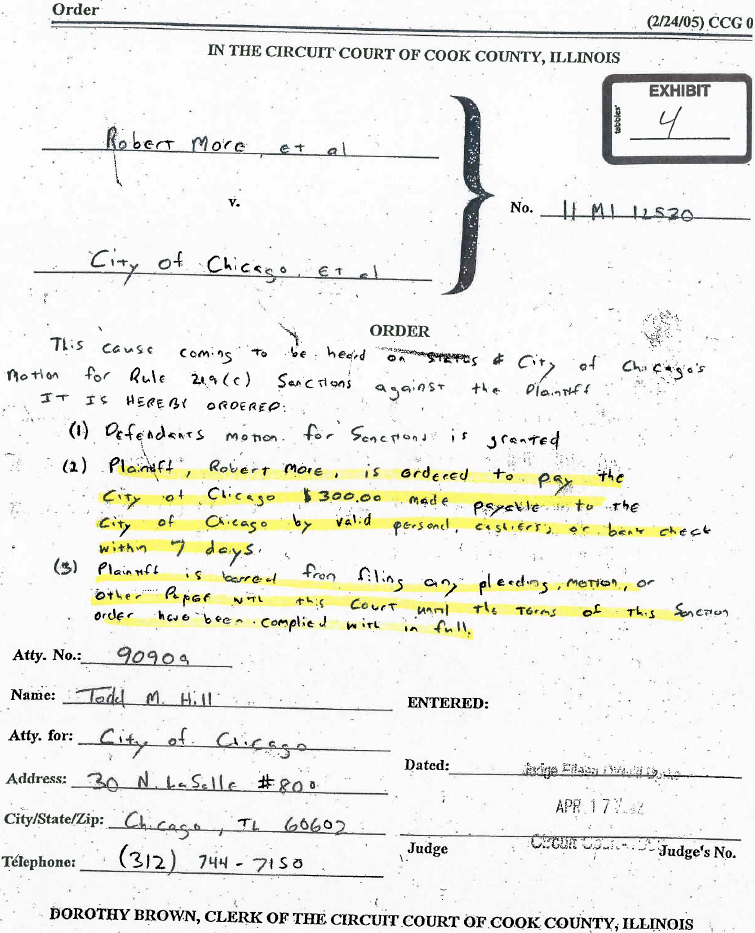 Order
(2/24/05) CCG 0
IN THE CIRCUIT COURT OF COOK COUNTY, ILLINOIS
EXHIBIT
4
tabbies'
Robert More, et al
v.
No. 11 M1 12530
City of Chicago, et al
ORDER
This cause coming to be heard on status & City of Chicago's
Motion for Rule 219(c) Sanctions against the Plaintiff
IT IS HEREBY ORDERED:
(1) Defendants motion for Sanctions is granted
(2) Plaintiff, Robert More, is ordered to pay the
City of Chicago $300.00 made payable to the
City of Chicago by valid personal, cashiers, or bank check
within 7 days.
(3) Plaintiff is barred from filing any pleading, motion, or
other Paper with this Court until the terms of this Sanction
order have been complied with in full.
Atty. No.: 90909
Name: Todd M. Hill
ENTERED:
Atty. for: City of Chicago
Dated:
Address: 30 N. LaSalle #800
APR 17
City/State/Zip: Chicago, IL 60602
Judge
Judge's No.
Telephone: (312) 744-7150
DOROTHY BROWN, CLERK OF THE CIRCUIT COURT OF COOK COUNTY, ILLINOIS